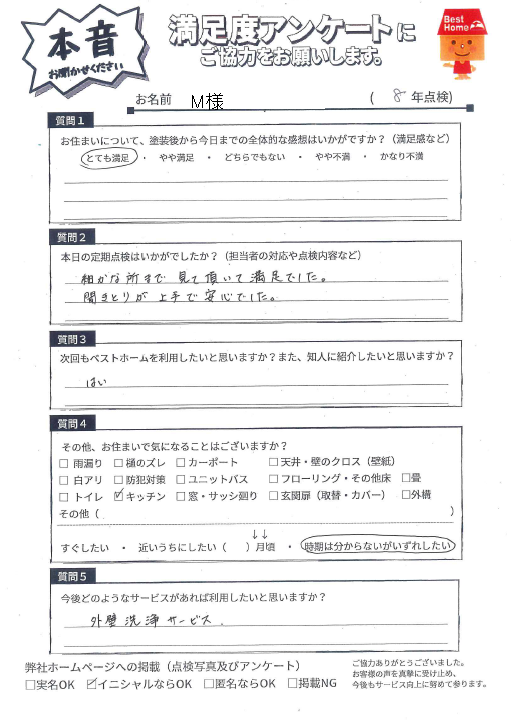 本音
お聞かせください
満足度アンケートに
ご協力をお願いします。
Best
Home
お名前 M様 ( 8 年点検)
質問1
お住まいについて、塗装後から今日までの全体的な感想はいかがですか？（満足感など）
とても満足 ・ やや満足 ・ どちらでもない ・ やや不満 ・ かなり不満
質問2
本日の定期点検はいかがでしたか？（担当者の対応や点検内容など）
細かな所まで 見て頂いて 満足でした。
聞きとりが 上手で安心でした。
質問3
次回もベストホームを利用したいと思いますか？また、知人に紹介したいと思いますか？
はい
質問4
その他、お住まいで気になることはございますか？
□ 雨漏り □ 樋のズレ □ カーポート □ 天井・壁のクロス（壁紙）
□ 白アリ □ 防犯対策 □ ユニットバス □ フローリング・その他床 □畳
□ トイレ ☑ キッチン □ 窓・サッシ廻り □ 玄関扉（取替・カバー） □外構
その他（ ）
↓↓
すぐしたい ・ 近いうちにしたい（ ）月頃 ・ 時期は分からないがいずれしたい
質問5
今後どのようなサービスがあれば利用したいと思いますか？
外壁洗浄サービス.
弊社ホームページへの掲載（点検写真及びアンケート）
□実名OK ☑イニシャルならOK □匿名ならOK □掲載NG
ご協力ありがとうございました。
お客様の声を真摯に受け止め、
今後もサービス向上に努めて参ります。